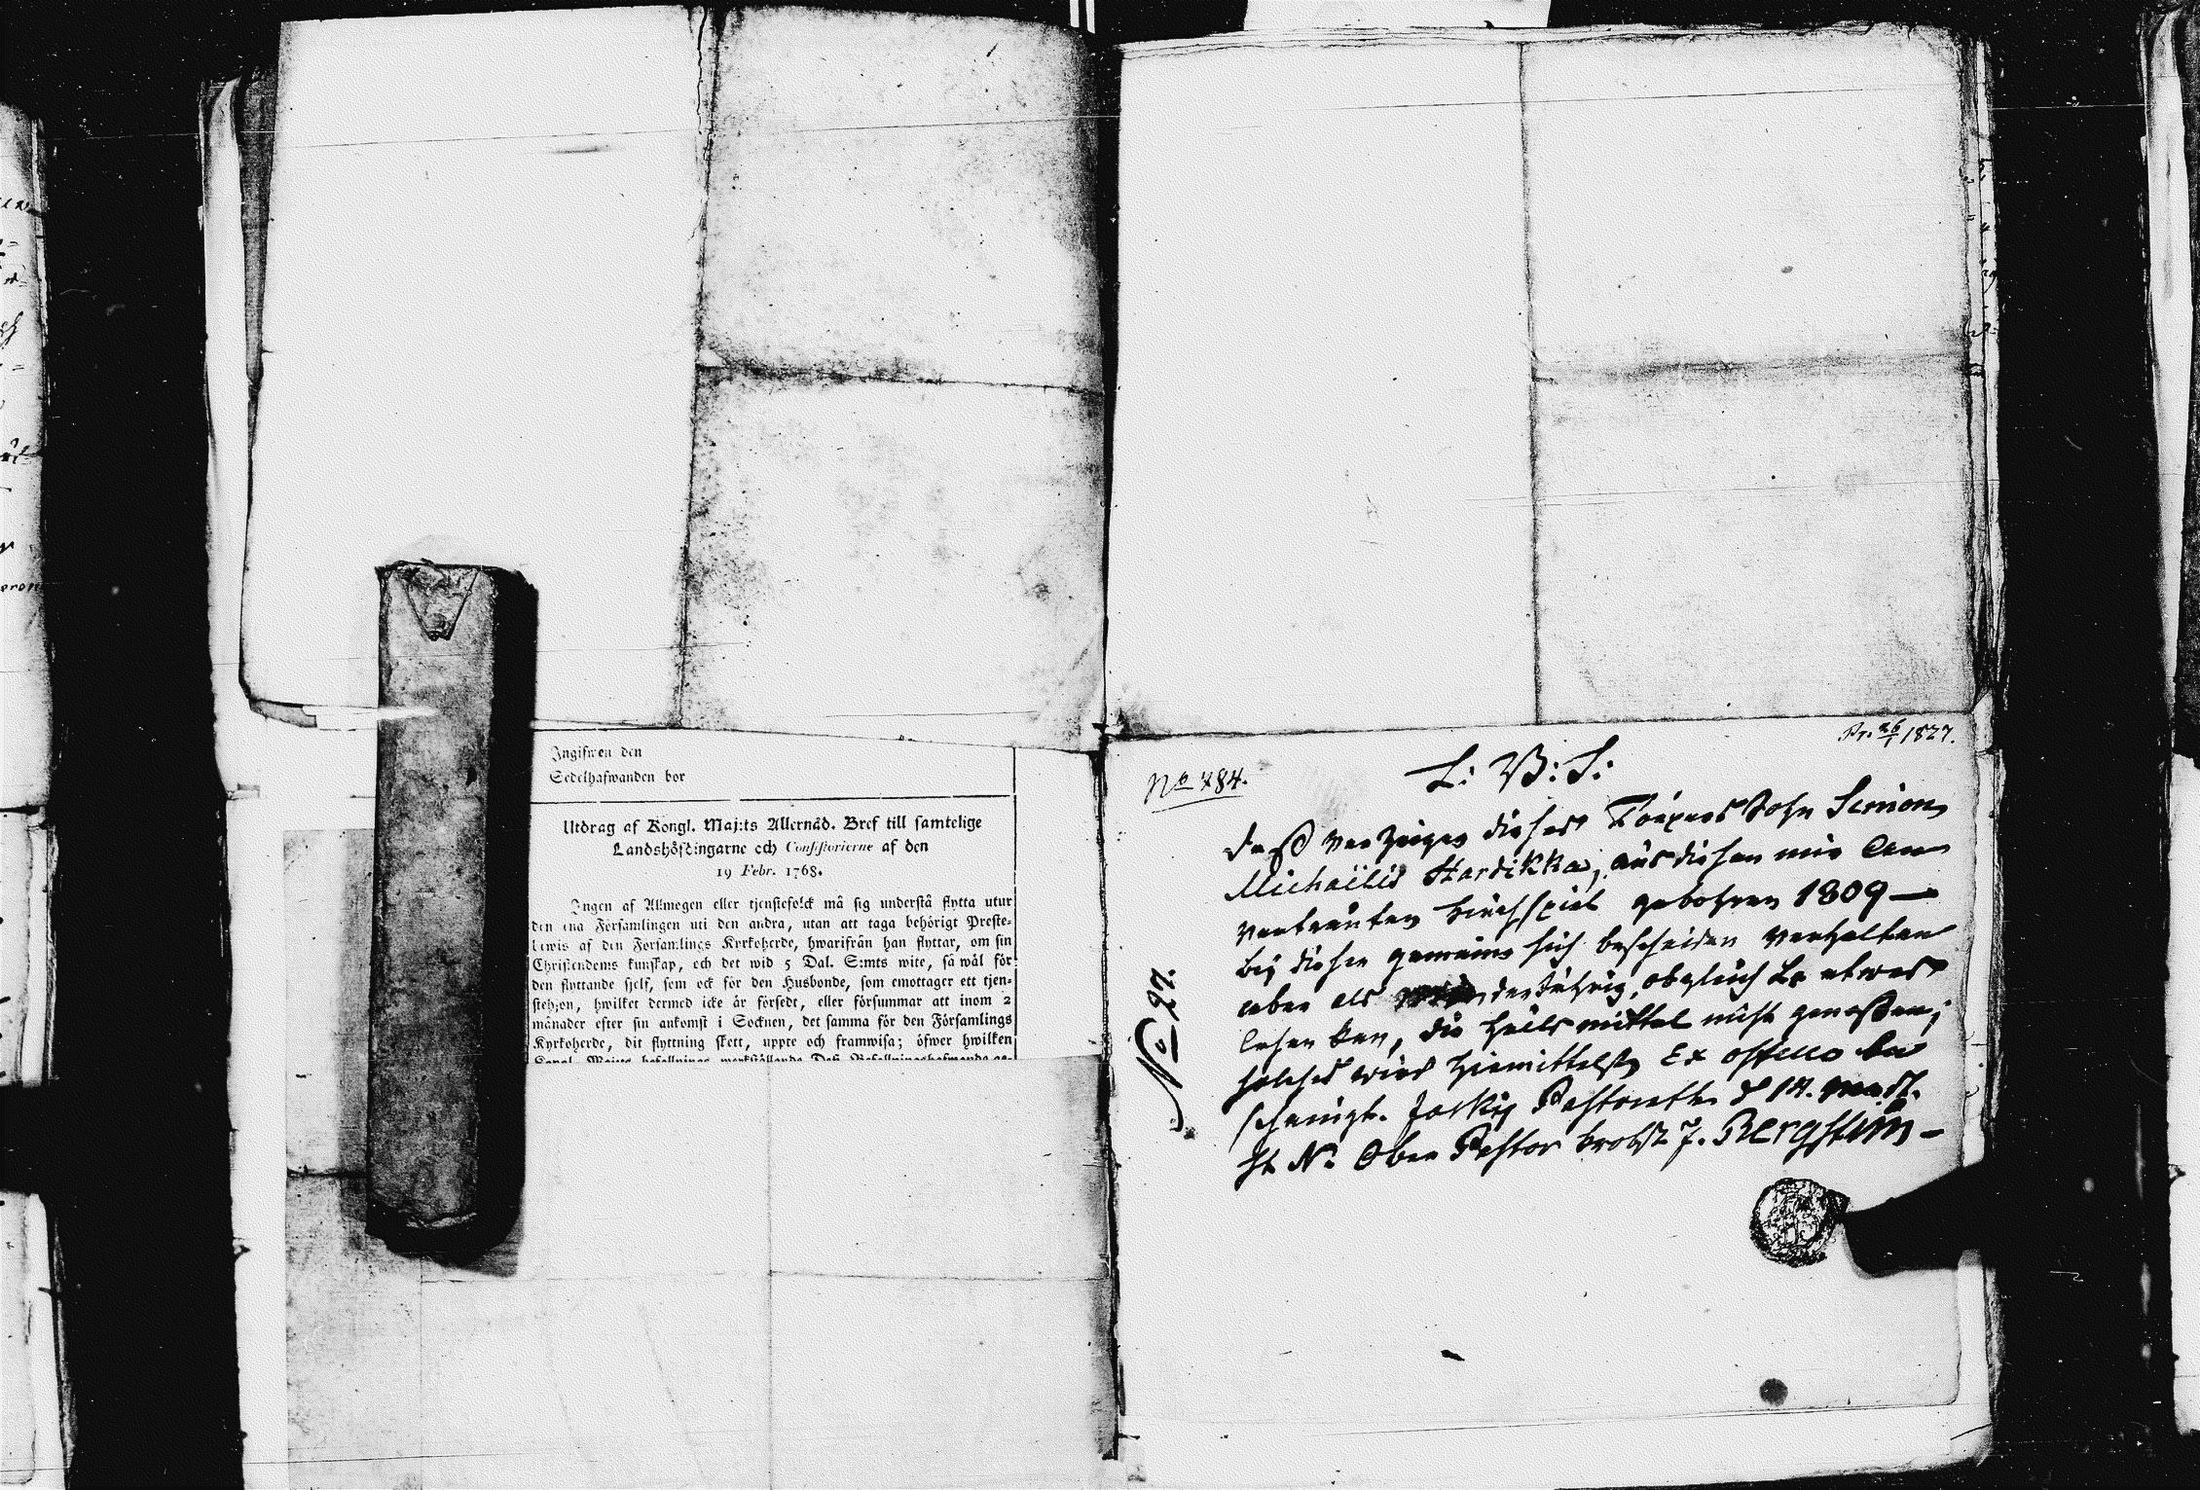 Ingifwen den
Sedelhafwanden bor
Utdrag af Kongl. Maj:ts Allernåd. Bref till samtelige
Landshöfdingarne och Consistorierne af den
19 Febr. 1768.
Ingen af Allmogen eller tjenstefolck må sig understå flytta utur
den ena Församlingen uti den andra, utan att taga behörigt Preste-
bewis af den Församlings Kyrkoherde, hwarifrån han flyttar, om sin
Christendoms kunskap, och det wid 5 Dal. S:mts wite, så wäl för
den flyttande sjelf, som ock för den Husbonde, som emottager ett tjen-
stehjon, hwilket dermed icke är försedt, eller försummar att inom 2
månader efter sin ankomst i Socknen, det samma för den Församlings
Kyrkoherde, dit flyttning skett, uppte och framwisa; öfwer hwilken
Pr. 26/1 1827.
No 784.
L: B: S:
daß vorzeiger dieses Sohn Simon
Michaëlis Hardikka, aus diesen mir an
vertrauten Kirchspiel gebohren 1809 —
bey dieser gemeine sich bescheiden verhalten
aber als derjährig, obgleich Er etwas
lesen kan, die heilsmittel nicht genoßen;
solches wird hiermittelst Ex officio be
scheinigt. Pastorath d 14.
St Ns Ober Pastor Probst J. Bergström —
No 27.